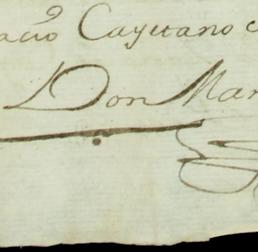 acio Cayetano
Don Mar